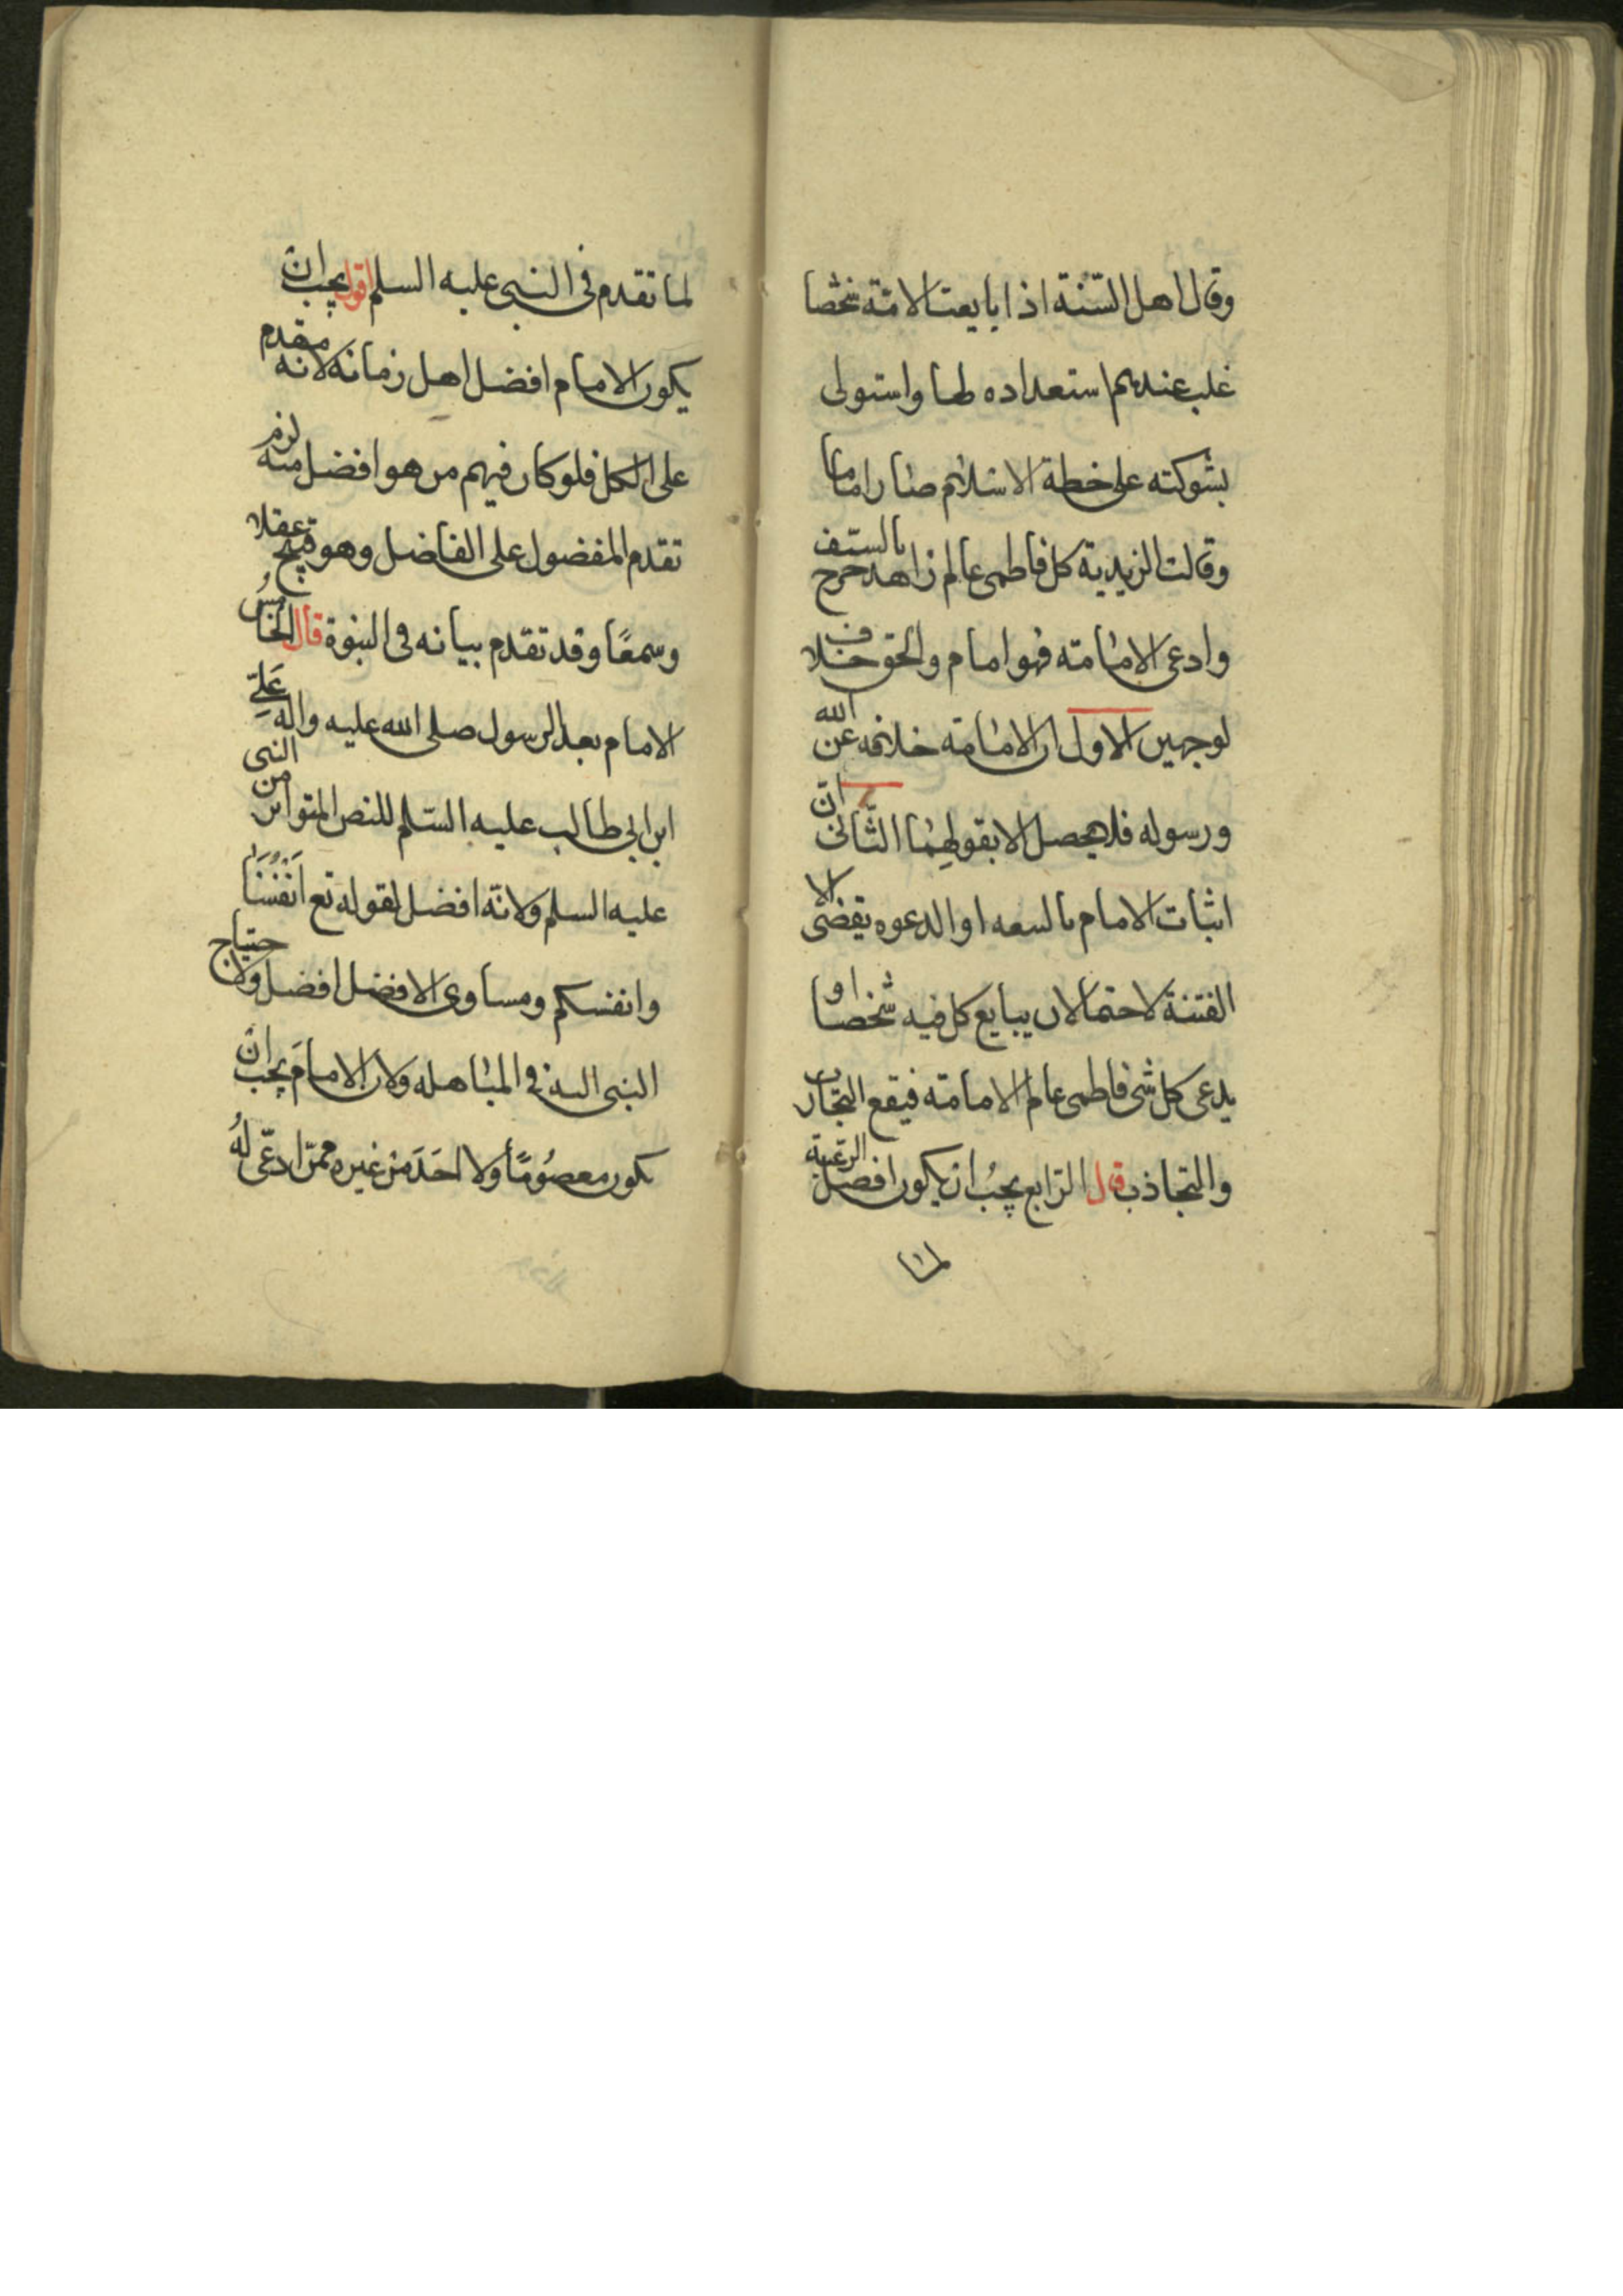 وقال اهل السّنة اذا بايعت الامّة شخصا
غلب عندهم استعداده لها واستولى
بشوكته على خطة الاسلام صار اماما
وقالت الزيدية كل فاطمى عالم زاهد خرج بالسيف
وادعى الامامته فهو امام والحق خلاف
لوجهين الاول ان الامامة خلافه عن الله
ورسوله فلا يحصل الا بقولهما الثّانى انّ
اثبات الامام بالسعه او الدعوه يقضى الا
الفتنة لاحتمال ان يبايع كل فيه شخصا او
يدعى كل شى فاطمى عالم الامامته فيقع التجارب
والتجاذب قال الرّابع يجبُ ان يكون افضل الرّعية
لما
لما تقدم فى النبى عليه السلم اقول يجب ان
يكون الامام افضل اهل زمانه لانه مقدم
على الكل فلو كان فيهم من هو افضل منه لزم
تقدم المفضول على الفاضل وهو قبيح عقلا
وسمعًا وقد تقدم بيانه فى النبوة قال الخامسُ
الامام بعد الرسول صلى الله عليه واله عَلىّ
ابن ابى طالب عليه السّلم للنص المتواتر من النبى
عليه السلم ولانّه افضل لقوله تع انفُسَنَا
وانفسكم ومساوى الافضل افضل ولاحتياج
النبى اليه فى المباهله ولان الامامَ يجب ان
يكون معصُومًا ولا احَدَ من غيره ممّن ادعّى لهُ